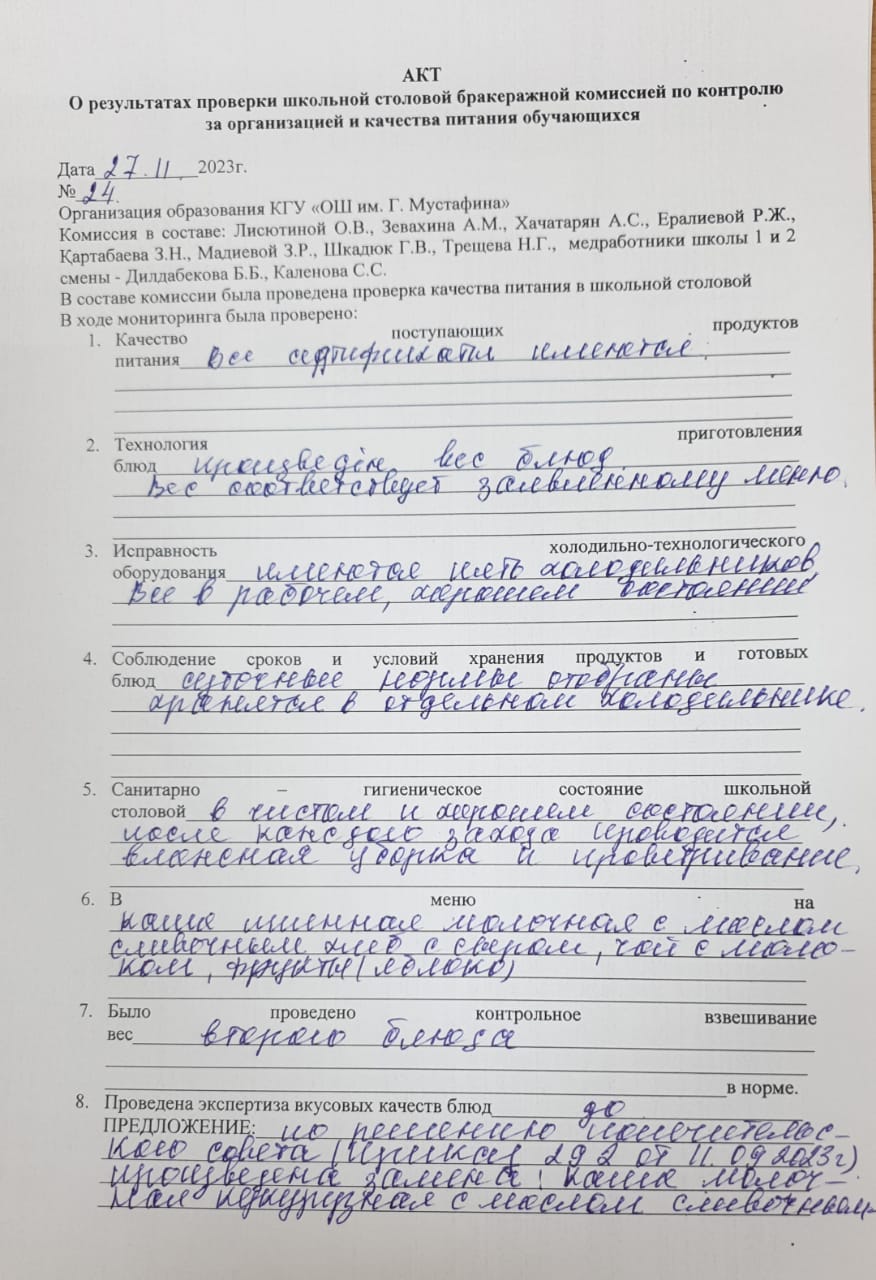 АКТ
О результатах проверки школьной столовой бракеражной комиссией по контролю
за организацией и качества питания обучающихся
Дата 27.11. 2023г.
№ 24.
Организация образования КГУ «ОШ им. Г. Мустафина»
Комиссия в составе: Лисютиной О.В., Зевахина А.М., Хачатарян А.С., Ералиевой Р.Ж.,
Қартабаева З.Н., Мадиевой З.Р., Шкадюк Г.В., Трещева Н.Г., медработники школы 1 и 2
смены - Дилдабекова Б.Б., Каленова С.С.
В составе комиссии была проведена проверка качества питания в школьной столовой
В ходе мониторинга была проверено:
1. Качество поступающих продуктов
питания все сертификаты имеются.
2. Технология приготовления
блюд произведён вес блюд.
Вес соответствует заявленному меню.
3. Исправность холодильно-технологического
оборудования имеются пять холодильников,
Все в рабочем, хорошем состоянии
4. Соблюдение сроков и условий хранения продуктов и готовых
блюд суточные нормы отобраны
хранятся в отдельном холодильнике.
5. Санитарно – гигиеническое состояние школьной
столовой в чистом и хорошем состоянии,
после каждого захода проводится
влажная уборка и проветривание.
6. В меню на
каша пшенная молочная с маслом
сливочным хлеб с сыром, чай с моло-
ком, фрукты (яблоко)
7. Было проведено контрольное взвешивание
вес второго блюда
в норме.
8. Проведена экспертиза вкусовых качеств блюд да
ПРЕДЛОЖЕНИЕ: по решению попечительс-
кого совета (Приказ 292 от 11.09 2023г)
произведена замена: каша молоч-
ная кукурузная с маслом сливочным-